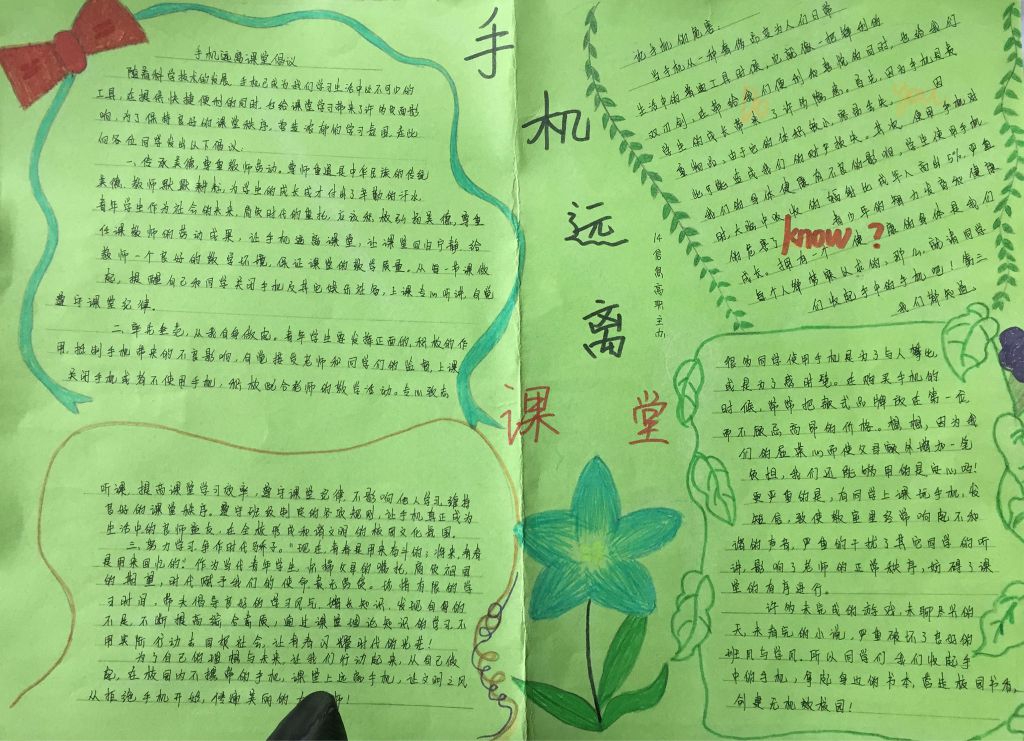 手机远离课堂倡议
随着科学技术的发展，手机已成为我们学习生活中必不可少的
工具，在提供快捷便利的同时，也给课堂学习带来了许多负面影
响，为了保持良好的课堂秩序，营造浓郁的学习氛围，在此
向各位同学发出以下倡议：
一、传承美德，尊重教师劳动。尊师重道是中华民族的传统
美德，教师默默耕耘，为学生的成长成才付出了辛勤的汗水。
青年学生作为社会的未来，肩负时代的重托，应该传承优良美德，尊重
任课教师的劳动成果，让手机远离课堂，让课堂回归宁静，给
教师一个良好的教学环境，保证课堂的教学质量，从每一节课做
起，提醒自己和同学关闭手机及其它娱乐设备，上课专心听讲，自觉
遵守课堂纪律。
二、率先垂范，从我自身做起。青年学生要发挥正面的、积极的作
用，抵制手机带来的不良影响，自觉接受老师和同学们的监督，上课
关闭手机或者不使用手机，积极配合老师的教学活动。专心致志
听课，提高课堂学习效率，遵守课堂纪律，不影响他人学习，维持
良好的课堂秩序。遵守班级制定的各项规则，让手机真正成为
生活中的良师益友，在全校形成和谐文明的校园文化氛围。
三、努力学习，争作时代骄子。“现在，青春是用来奋斗的；将来，青春
是用来回忆的！”作为当代青年学生，承接父母的嘱托，肩负祖国
的期望，时代赋予我们的使命责无旁贷。珍惜有限的学
习时间，带头倡导良好的学习风气，增长知识，发现自身的
不足，不断提高综合素质，通过课堂理论知识的学习，不
用实际行动去回报社会，让青春闪耀时代的光芒！
为了自己的理想与未来，让我们行动起来，从自己做
起，在校园内不携带的手机，课堂上远离手机，让文明之风
从拒绝手机开始，传递美丽的
手
机
远
离
课 堂
14官寓高职主办
论手机的危害：
当手机从一种奢侈品变为人们日常
生活中的普通工具时候，也就像一把锋利的
双刃剑，在带给人们便利和喜悦的同时，也给我们
学生的成长带来了许多隐患。首先，因为手机是贵
重物品，由于它的体积较小，容易丢失。
因
此可能造成我们的财产损失。其次，使用手机对
我们的身体健康有不良的影响，学生使用手机
时大脑中吸收的辐射比成年人高的5%，严重
的危害了
青少年的智力发育和健康
成长。拥有一个健康的身体是我们
每个人梦寐以求的，那么，就请同学
们收起手中的手机吧！第三
我们都知道，
know？
很多同学使用手机是为了与人攀比
或是为了赶时髦。在购买手机的
时候，常常把款式品牌放在第一位
而不顾忌高昂的价格。想想，因为我
们的虚荣心而使父母额外增加一笔
负担，我们还能够用的是安心吗！
更严重的是，有同学上课玩手机，发
短信，致使教室里经常响起不和
谐的声音，严重的干扰了其它同学的听
讲，影响了老师的正常秩序，妨碍了课
堂的有序进行。
许多未完成的游戏，未聊尽兴的
天，未看完的小说，严重破坏了良好的
班风与学风，所以同学们我们收起手
中的手机，拿起身边的书本，营造校园书香，
创建无机微校园！